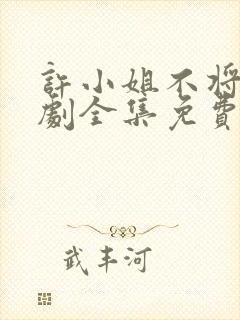 許小姐不将
劇全集免費
武丰河